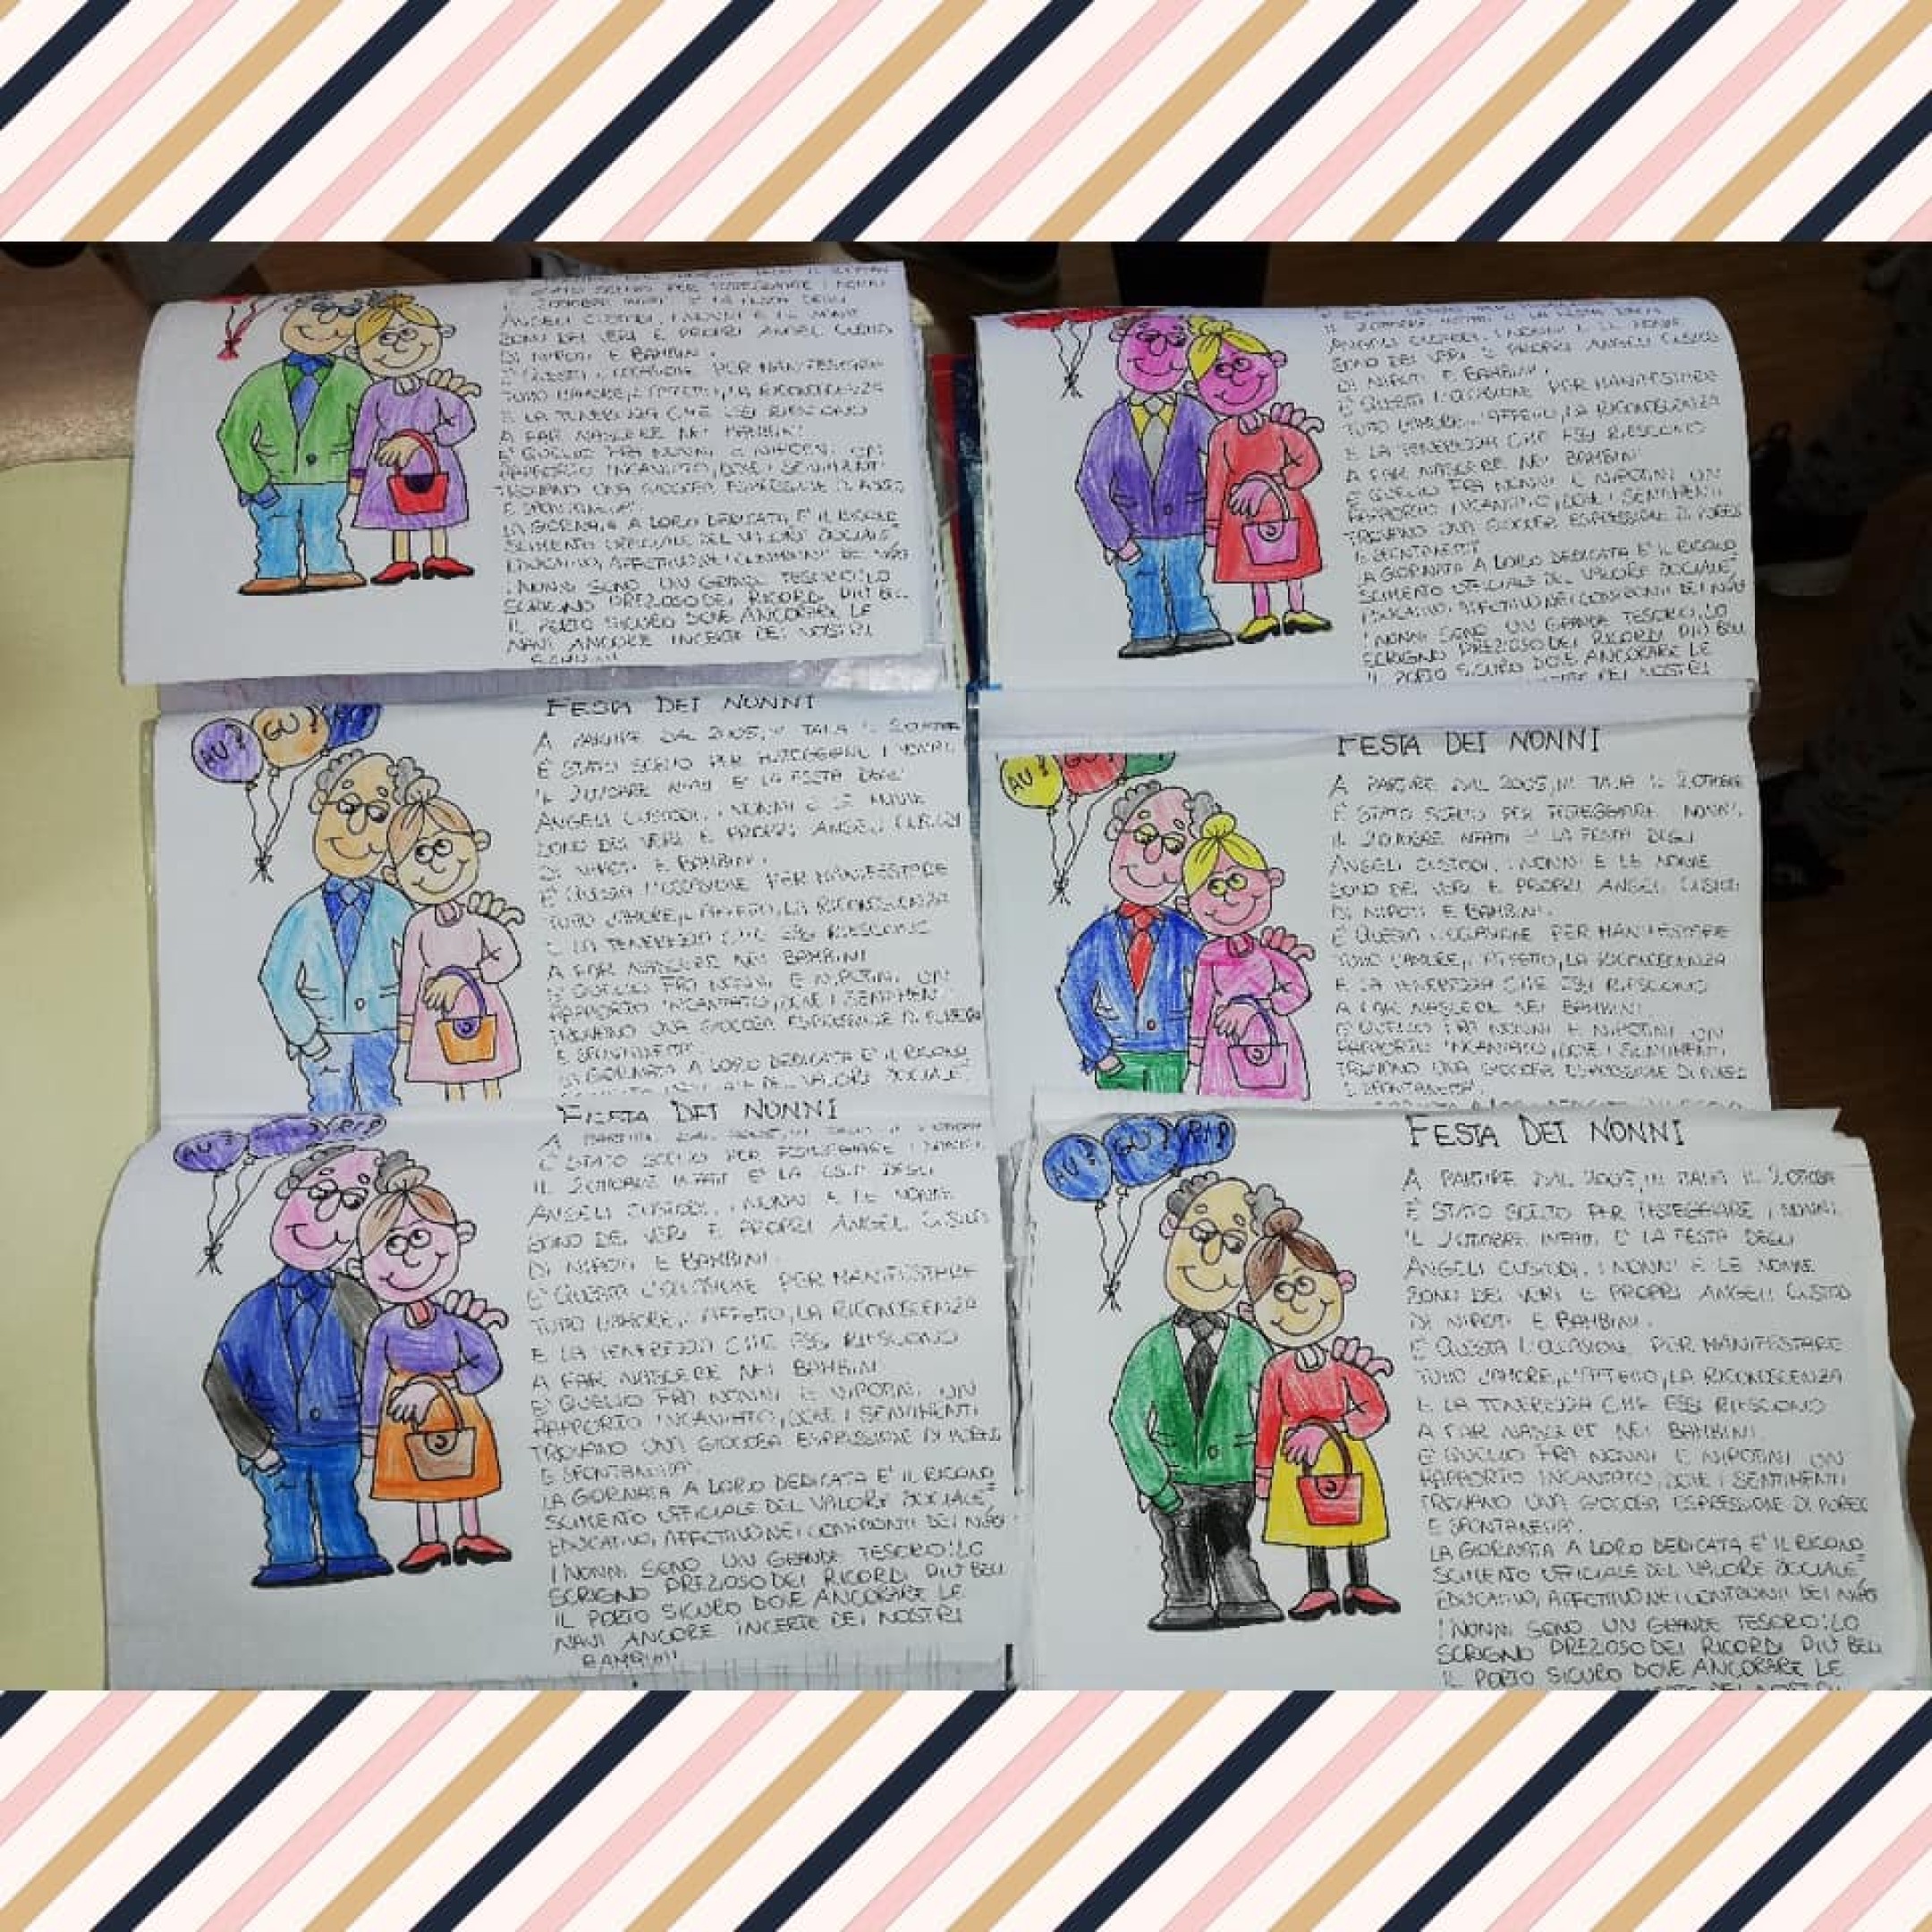 È STATO SCELTO PER FESTEGGIARE I NONNI
IL 2 OTTOBRE INFATTI È LA FESTA DEGLI
ANGELI CUSTODI, I NONNI E LE NONNE
SONO DEI VERI E PROPRI ANGELI CUSTODI
DI NIPOTI E BAMBINI.
E' QUESTA L'OCCASIONE PER MANIFESTARE
TUTTO L'AMORE, L'AFFETTO, LA RICONOSCENZA
E LA TENEREZZA CHE ESSI RIESCONO
A FAR NASCERE NEI BAMBINI
E' QUELLO FRA NONNI E NIPOTINI UN
RAPPORTO INCANTATO, DOVE I SENTIMENTI
TROVANO UNA GIOCOSA ESPRESSIONE DI
E SPONTANEITA'
LA GIORNATA A LORO DEDICATA E' IL RICONO
SCIMENTO UFFICIALE DEL VALORE SOCIALE
EDUCATIVO, AFFETTIVO NEI CONFRONTI DEI
I NONNI SONO UN GRANDE TESORO: LO
SCRIGNO PREZIOSO DEI RICORDI PIÙ BELL
IL PORTO SICURO DOVE ANCORARE LE
NAVI ANCORE INCERTE DEI NOSTRI
IL 2 OTTOBRE INFATTI È LA FESTA DEGLI
ANGELI CUSTODI, I NONNI E LE NONNE
SONO DEI VERI E PROPRI ANGELI CUSTODI
DI NIPOTI E BAMBINI.
E' QUESTA L'OCCASIONE PER MANIFESTARE
TUTTO L'AMORE, L'AFFETTO, LA RICONOSCENZA
E LA TENEREZZA CHE ESSI RIESCONO
A FAR NASCERE NEI BAMBINI
E' QUELLO FRA NONNI E NIPOTINI UN
RAPPORTO INCANTATO, DOVE I SENTIMENTI
TROVANO UNA GIOCOSA ESPRESSIONE DI
E SPONTANEITA'
LA GIORNATA A LORO DEDICATA E' IL RICONO
SCIMENTO UFFICIALE DEL VALORE SOCIALE
EDUCATIVO, AFFETTIVO NEI CONFRONTI DEI
I NONNI SONO UN GRANDE TESORO: LO
SCRIGNO PREZIOSO DEI RICORDI PIÙ BELL
IL PORTO SICURO DOVE ANCORARE LE
AU? GU?
FESTA DEI NONNI
A PARTIRE DAL 2005, IN ITALIA IL 2 OTTOBRE
È STATO SCELTO PER FESTEGGIARE I NONNI
IL 2 OTTOBRE INFATTI È LA FESTA DEGLI
ANGELI CUSTODI, I NONNI E LE NONNE
SONO DEI VERI E PROPRI ANGELI CUSTODI
DI NIPOTI E BAMBINI.
E' QUESTA L'OCCASIONE PER MANIFESTARE
TUTTO L'AMORE, L'AFFETTO, LA RICONOSCENZA
E LA TENEREZZA CHE ESSI RIESCONO
A FAR NASCERE NEI BAMBINI
E' QUELLO FRA NONNI E NIPOTINI UN
RAPPORTO INCANTATO, DOVE I SENTIMENTI
TROVANO UNA GIOCOSA ESPRESSIONE DI
E SPONTANEITA'
LA GIORNATA A LORO DEDICATA E' IL RICONO
DEL VALORE SOCIALE
AU? GU?
FESTA DEI NONNI
A PARTIRE DAL 2005, IN ITALIA IL 2 OTTOBRE
È STATO SCELTO PER FESTEGGIARE I NONNI.
IL 2 OTTOBRE INFATTI È LA FESTA DEGLI
ANGELI CUSTODI, I NONNI E LE NONNE
SONO DEI VERI E PROPRI ANGELI CUSTODI
DI NIPOTI E BAMBINI.
E' QUESTA L'OCCASIONE PER MANIFESTARE
TUTTO L'AMORE, L'AFFETTO, LA RICONOSCENZA
E LA TENEREZZA CHE ESSI RIESCONO
A FAR NASCERE NEI BAMBINI
E' QUELLO FRA NONNI E NIPOTINI UN
RAPPORTO INCANTATO, DOVE I SENTIMENTI
TROVANO UNA GIOCOSA ESPRESSIONE DI
E SPONTANEITA'
AU?
FESTA DEI NONNI
È STATO SCELTO PER FESTEGGIARE I NONNI.
IL 2 OTTOBRE INFATTI È LA FESTA DEGLI
ANGELI CUSTODI, I NONNI E LE NONNE
SONO DEI VERI E PROPRI ANGELI CUSTODI
DI NIPOTI E BAMBINI.
E' QUESTA L'OCCASIONE PER MANIFESTARE
TUTTO L'AMORE, L'AFFETTO, LA RICONOSCENZA
E LA TENEREZZA CHE ESSI RIESCONO
A FAR NASCERE NEI BAMBINI
E' QUELLO FRA NONNI E NIPOTINI UN
RAPPORTO INCANTATO, DOVE I SENTIMENTI
TROVANO UNA GIOCOSA ESPRESSIONE DI
E SPONTANEITA'
LA GIORNATA A LORO DEDICATA E' IL RICONO
SCIMENTO UFFICIALE DEL VALORE SOCIALE
EDUCATIVO, AFFETTIVO NEI CONFRONTI DEI
I NONNI SONO UN GRANDE TESORO: LO
SCRIGNO PREZIOSO DEI RICORDI PIÙ BELL
IL PORTO SICURO DOVE ANCORARE LE
NAVI ANCORE INCERTE DEI NOSTRI
BAMBINI!
AU? GU? RI?
FESTA DEI NONNI
A PARTIRE DAL 2005, IN ITALIA IL 2 OTTOBRE
È STATO SCELTO PER FESTEGGIARE I NONNI.
IL 2 OTTOBRE INFATTI È LA FESTA DEGLI
ANGELI CUSTODI, I NONNI E LE NONNE
SONO DEI VERI E PROPRI ANGELI CUSTOD
DI NIPOTI E BAMBINI.
E' QUESTA L'OCCASIONE PER MANIFESTARE
TUTTO L'AMORE, L'AFFETTO, LA RICONOSCENZA
E LA TENEREZZA CHE ESSI RIESCONO
A FAR NASCERE NEI BAMBINI.
E' QUELLO FRA NONNI E NIPOTINI UN
RAPPORTO INCANTATO, DOVE I SENTIMENTI
TROVANO UNA GIOCOSA ESPRESSIONE DI
E SPONTANEITA'.
LA GIORNATA A LORO DEDICATA E' IL RICONO
SCIMENTO UFFICIALE DEL VALORE SOCIALE
EDUCATIVO, AFFETTIVO NEI CONFRONTI DEI
I NONNI SONO UN GRANDE TESORO: LO
SCRIGNO PREZIOSO DEI RICORDI PIÙ BELL
IL PORTO SICURO DOVE ANCORARE LE